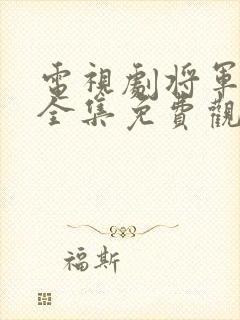 電視劇將軍
全集免費觀
福斯